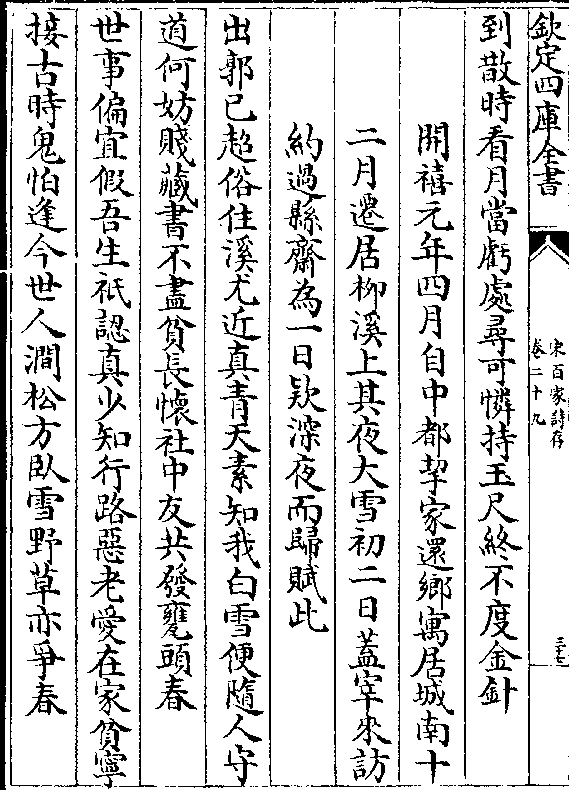 欽定四庫全書
宋百家詩存
卷二十九
三十七
到散時看月當虧處尋可憐持玉尺終不度金針
開禧元年四月自中都挈家還鄉寓居城南十
二月遷居柳溪上其夜大雪初二日蓋宰來訪
約過縣齋為一日欵深夜而歸賦此
出郭已超俗住溪尤近真青天素知我白雪便隨人守
道何妨賤藏書不盡貧長懷社中友共發甕頭春
世事偏宜假吾生祇認真少知行路惡老愛在家貧寧
接古時鬼怕逢今世人澗松方臥雪野草亦爭春